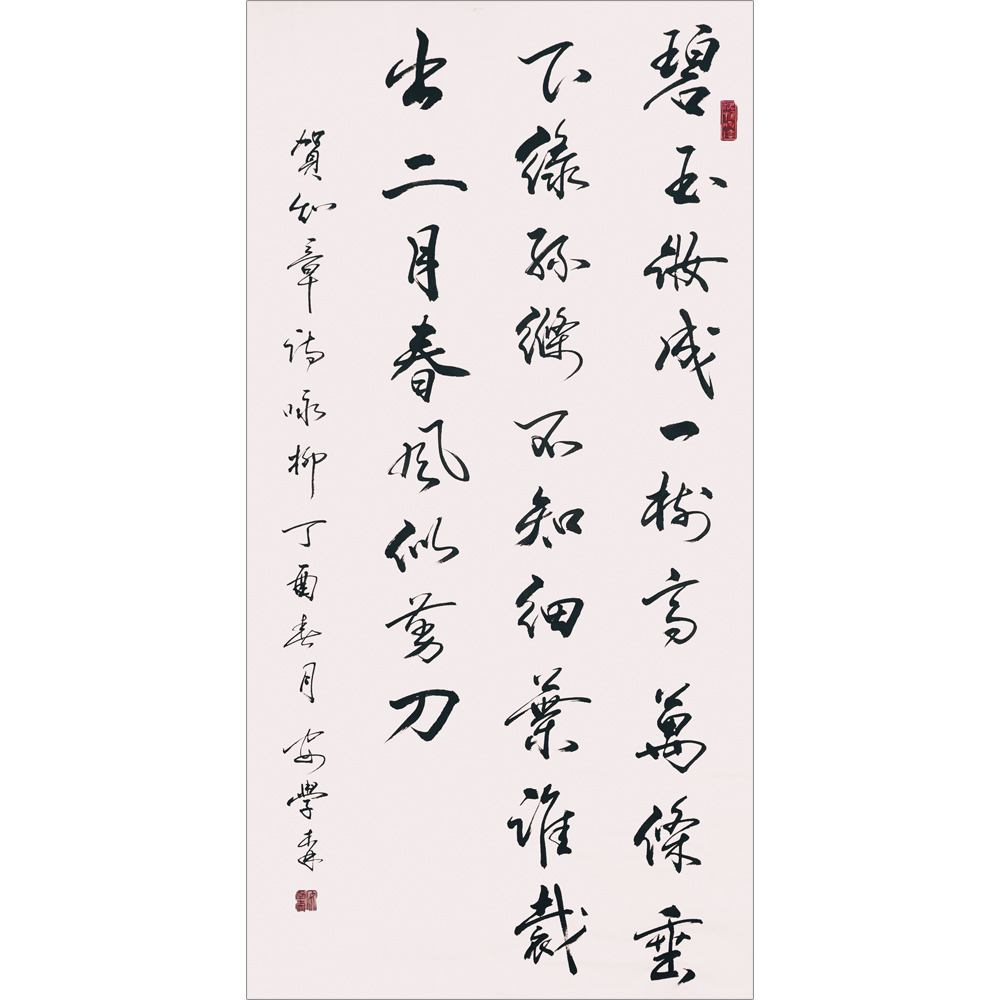 碧玉妝成一樹高萬條垂
下綠絲縧不知細葉誰裁
出二月春風似剪刀
賀知章詩咏柳丁酉春月安學森